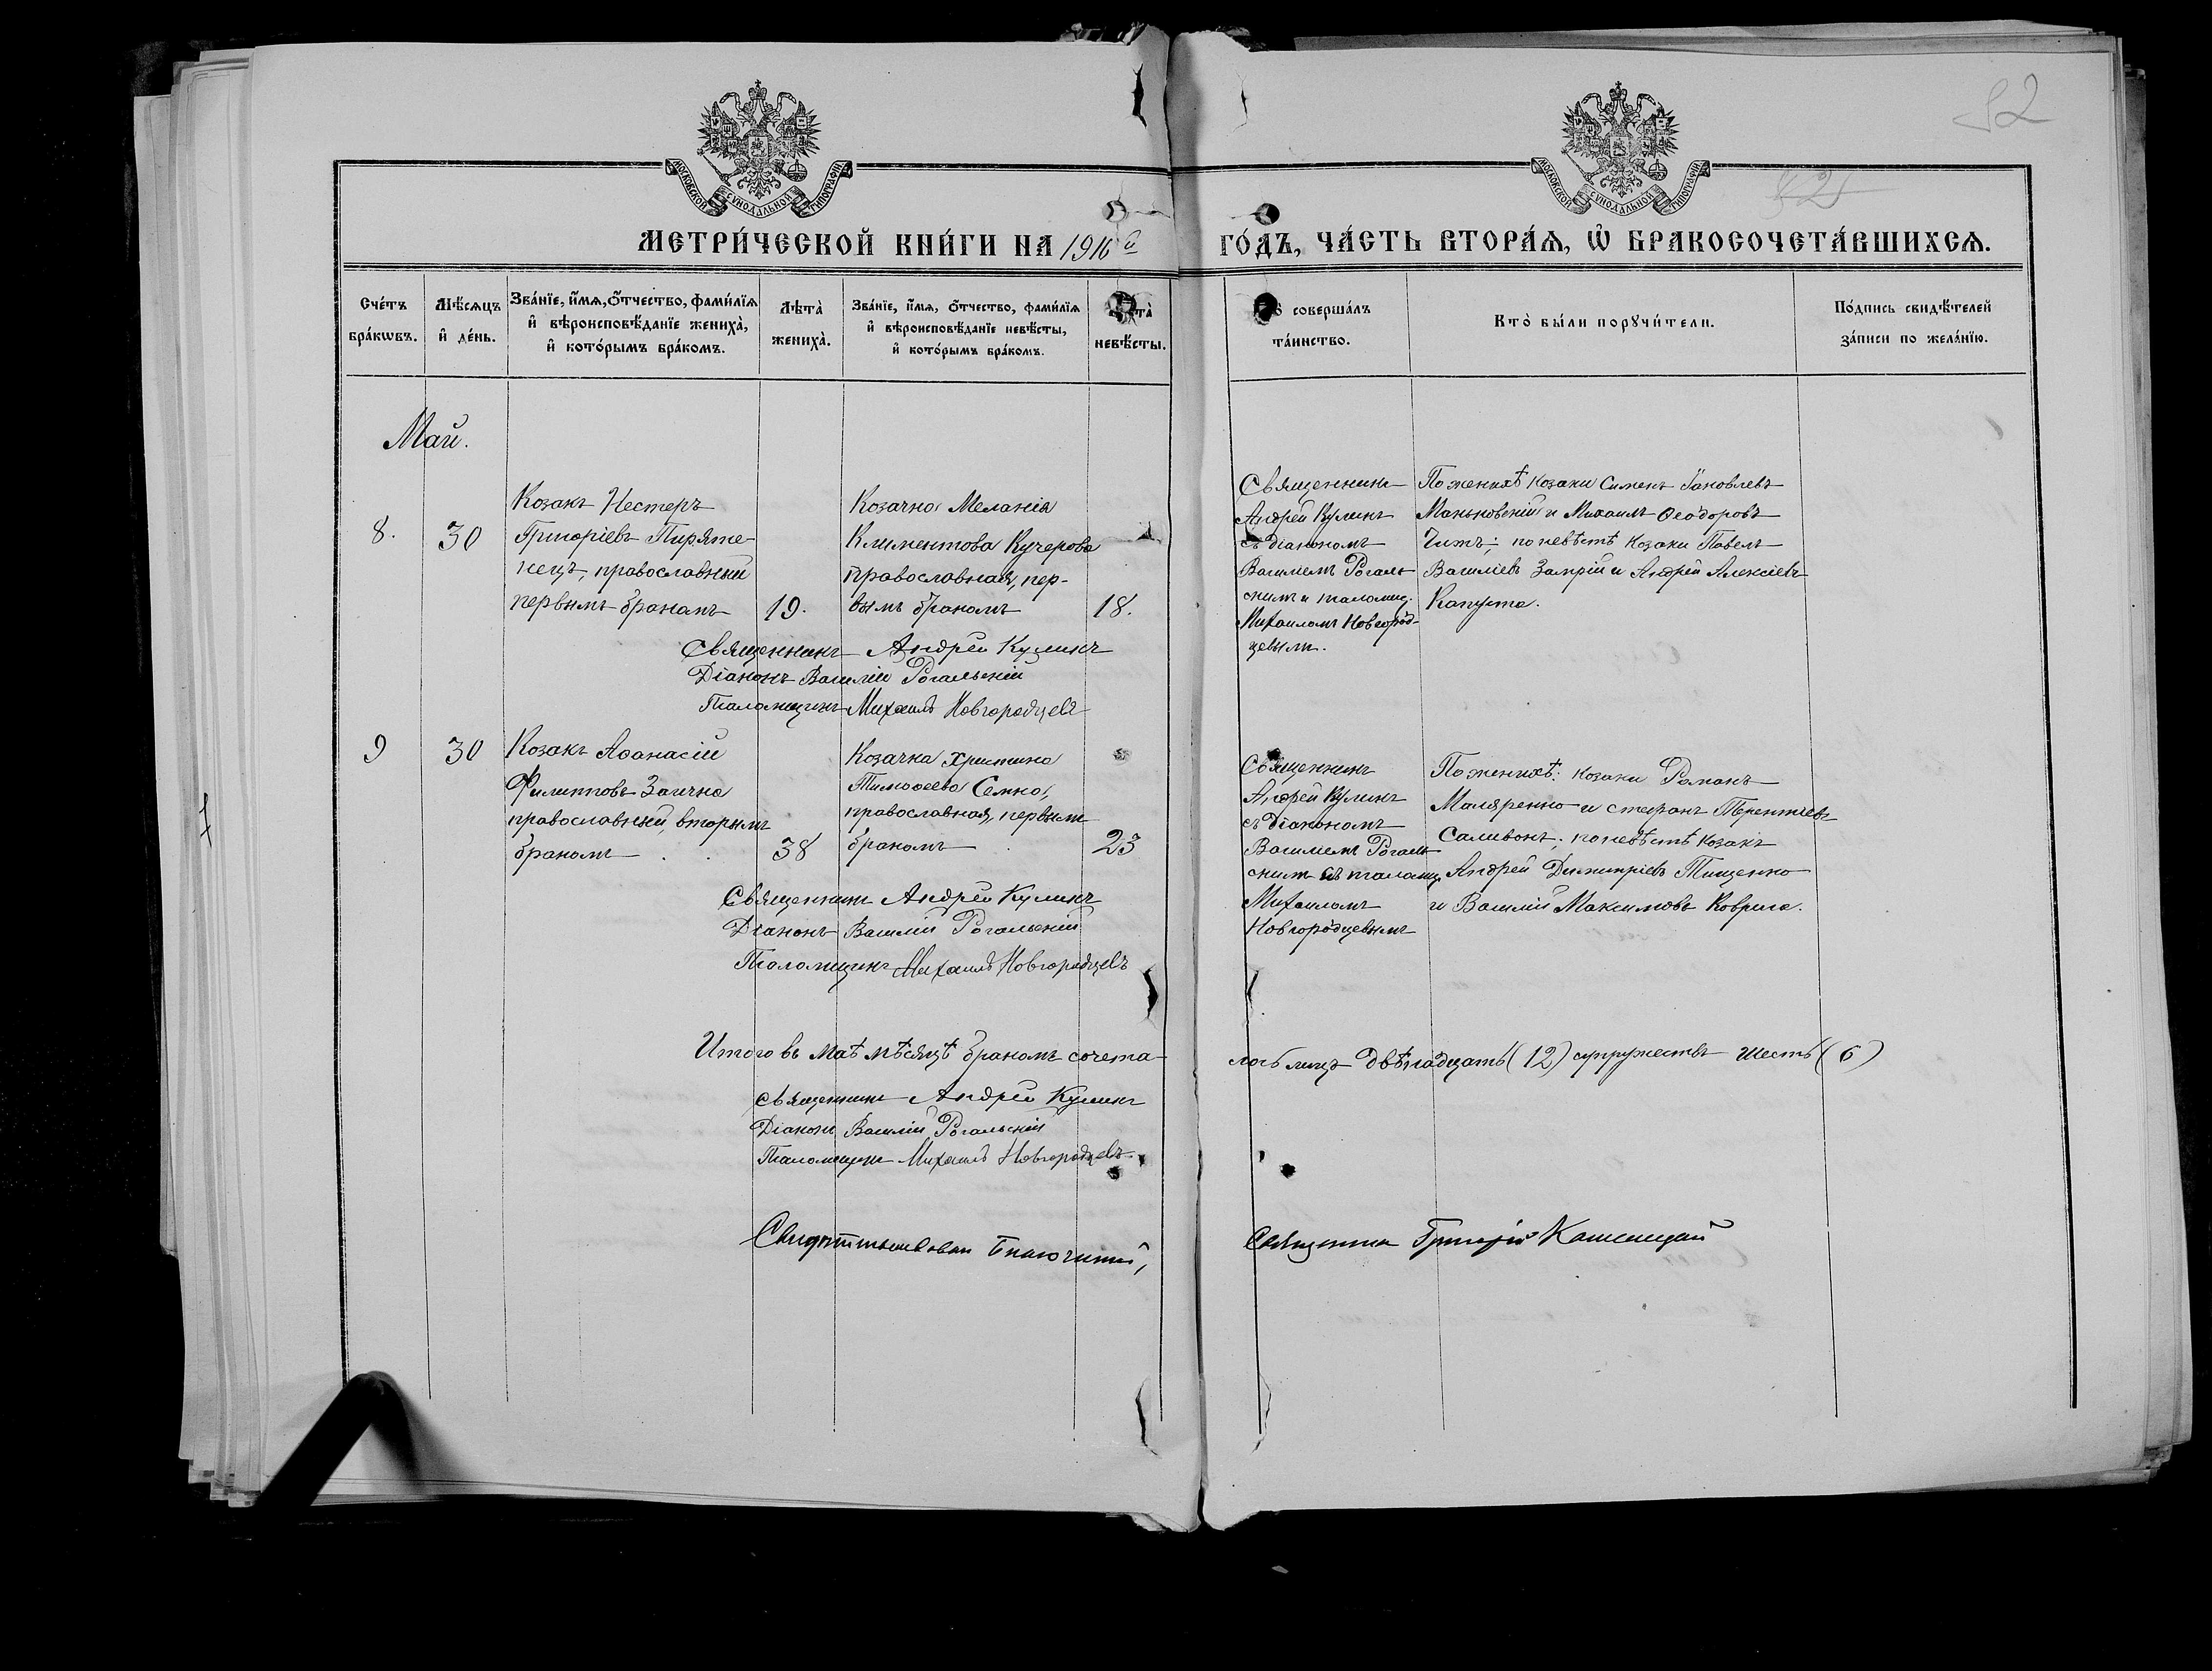 52
52
МОСКОВСКОЙ СѴНОДАЛЬНОЙ ТИПОГРАФІИ
МОСКОВСКОЙ СѴНОДАЛЬНОЙ ТИПОГРАФІИ
МЕТРИ́ЧЕСКОЙ КНИ́ГИ НА 1916й
ГО́ДЪ, ЧА́СТЬ ВТОРА́Ѧ, Ѽ БРАКОСОЧЕТА́ВШИХСѦ.
Сче́тъ
бра́кѡвъ.
Мѣ́сяцъ
и҆ де́нь.
Зва́нїе, и҆́мѧ, ѻ҆́тчество, фами́лїѧ
и҆ вѣроисповѣ́данїе жениха̀,
и҆ кото́рымъ бра́комъ.
Лѣта̀
жениха̀.
Зва́нїе, и҆́мѧ, ѻ҆́тчество, фами́лїѧ
и҆ вѣроисповѣ́данїе невѣ́сты,
и҆ кото́рымъ бра́комъ.
невѣ́сты.
соверша́лъ
та́инство.
Кто̀ бы́ли порꙋчи́тели.
По́дпись свидѣ́телей
за́писи по жела́нїю.
Май.
8.
30
Козакъ Нестеръ
Григоріевъ Пиряте-
нецъ, православный
первымъ бракомъ
19.
Козачка Меланія
Климентова Кучерова
православная, пер-
вымъ бракомъ
18.
Священникъ
Андрей Куликъ
съ діакономъ
Василіемъ Рогаль
скимъ и псаломщ.
Михаиломъ Новгород-
цевымъ.
По женихѣ козаки Симеонъ Іаковлевъ
Маньковскій и Михаилъ Ѳеодоровъ
Чижъ; по невѣстѣ козаки Павелъ
Василіевъ Замрій и Андрей Алексіевъ
Капуста.
Священникъ Андрей Куликъ
Діаконъ Василій Рогальскій
Псаломщикъ Михаилъ Новгородцевъ
9
30
Козакъ Аѳанасій
Филипповъ Заичко
православный, вторымъ
бракомъ
38
Козачка Христина
Тимоѳеева Семко,
православная, первымъ
бракомъ
23
Священникъ
Андрей Куликъ
съ діакономъ
Василіемъ Рогаль
скимъ съ псаломщ.
Михаиломъ
Новгородцевымъ
По женихѣ: козаки Романъ
Маляренко и Стефанъ Терентіевъ
Саливонъ; по невѣстѣ козакъ
Андрей Димитріевъ Тищенко
и Василій Максимовъ Коврига.
Священникъ Андрей Куликъ
Діаконъ Василій Рогальскій
Псаломщикъ Михаилъ Новгородцевъ
Итого въ маѣ мѣсяцѣ бракомъ сочета-
лось лицъ двѣнадцать (12) супружествъ шесть (6)
Священникъ Андрей Куликъ
Діаконъ Василій Рогальскій
Псаломщикъ Михаилъ Новгородцевъ
Свидѣтельствовалъ Благочинный,
Священникъ Григорій